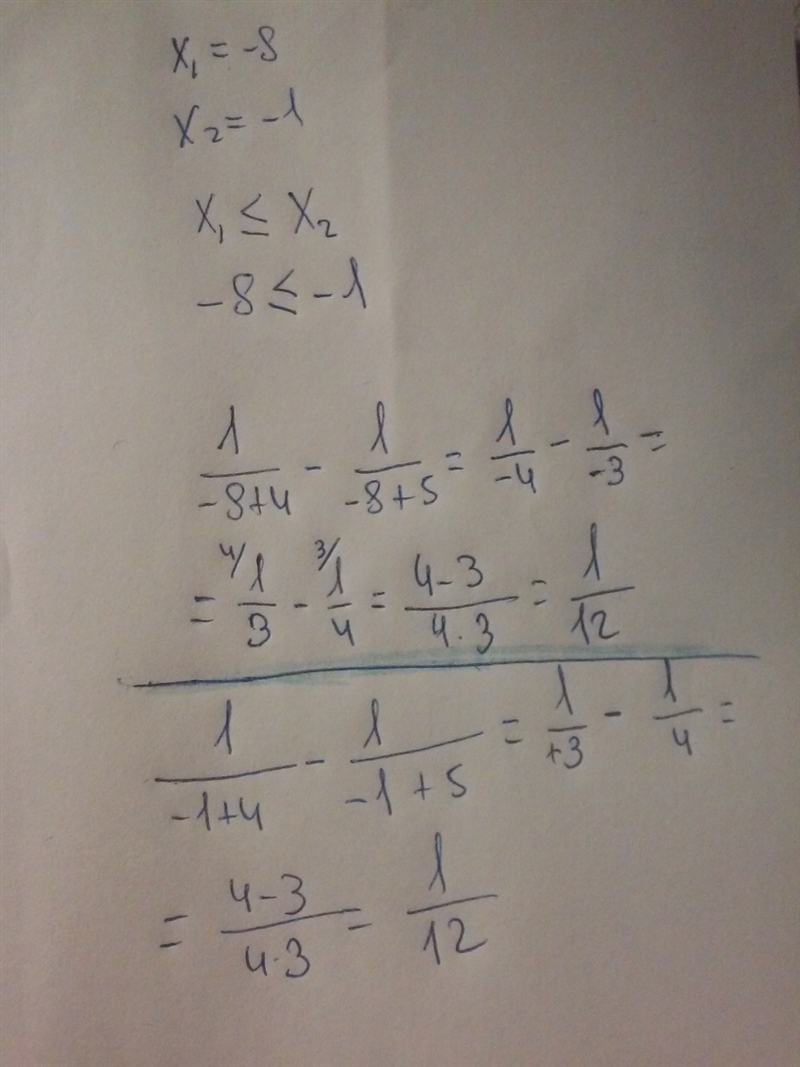 x₁ = -8
x₂ = -1
x₁ ≤ x₂
-8 ≤ -1
1/(-8+4) - 1/(-8+5) = 1/-4 - 1/-3 =
= ⁴/ 1/3 - ³/ 1/4 = (4-3)/(4·3) = 1/12
1/(-1+4) - 1/(-1+5) = 1/+3 - 1/4 =
= (4-3)/(4·3) = 1/12